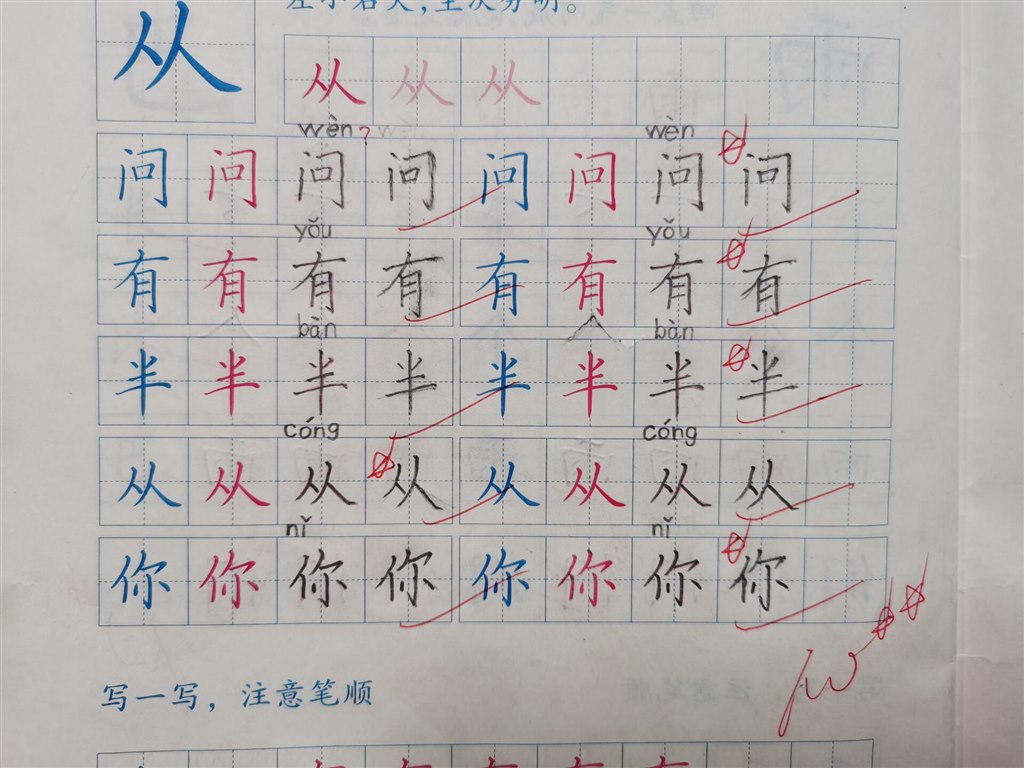 从 从 从 从
wèn? wèn
问 问 问 问 问 问 问 问
yǒu yǒu
有 有 有 有 有 有 有 有
bàn bàn
半 半 半 半 半 半 半 半
cóng cóng
从 从 从 从 从 从 从 从
nǐ nǐ
你 你 你 你 你 你 你 你
写一写，注意笔顺